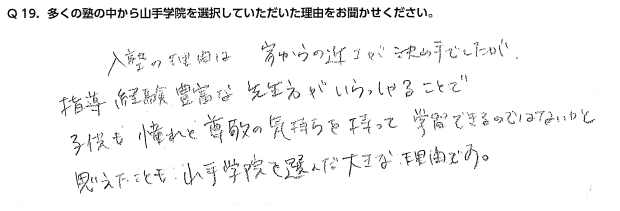 Q19．多くの塾の中から山手学院を選択していただいた理由をお聞かせください。
入塾の理由は 家からの近さが決め手でしたが、
指導経験豊富な先生方がいらっしゃることで
子供も憧れと尊敬の気持ちを持って学習できるのではないかと
思えたことも山手学院を選んだ大きな理由です。